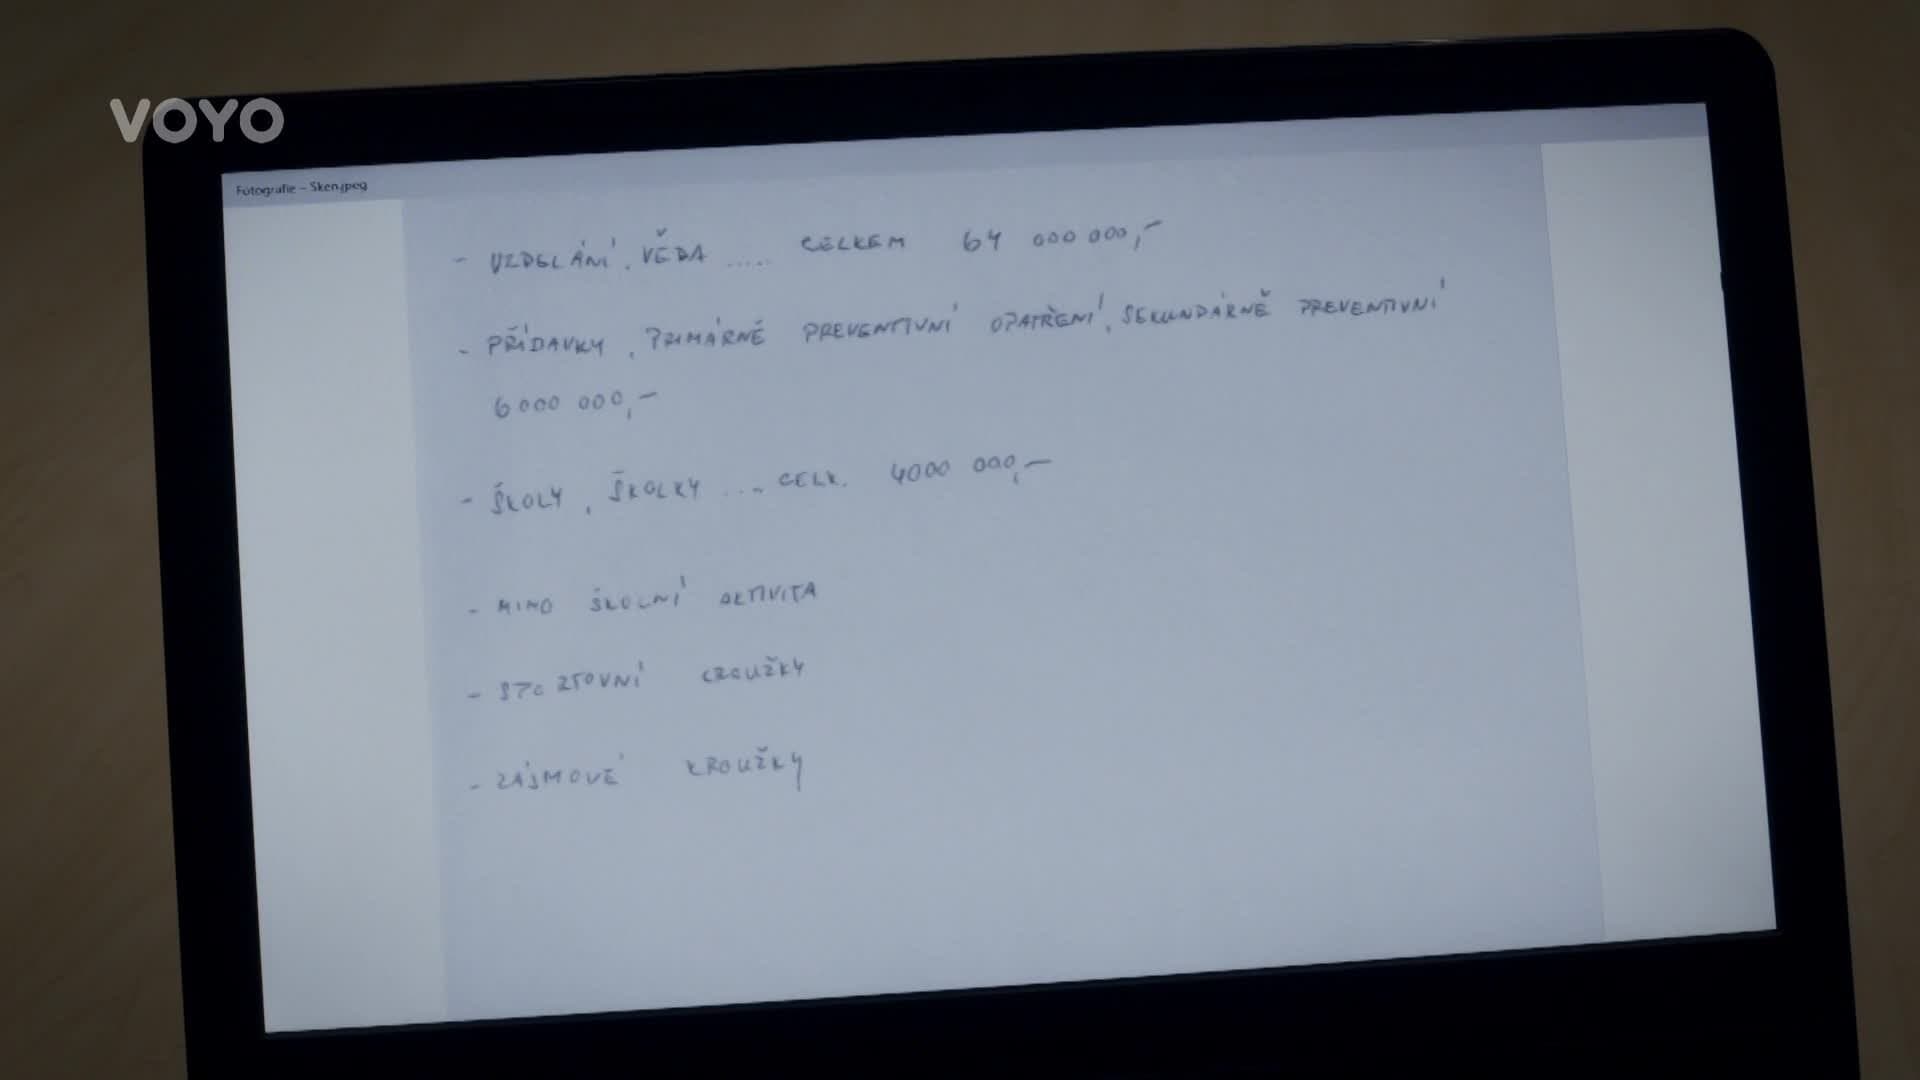 VOYO
Fotografie – Sken.jpeg
- VZDELÁNÍ, VĚDA ..... CELKEM 64 000 000,-
- PŘÍDAVKY, PRIMÁRNĚ PREVENTIVNÍ OPATŘENÍ, SEKUNDÁRNĚ PREVENTIVNÍ
6000 000,-
- ŠKOLY, ŠKOLKY .... CELK. 4000 000,-
- MIMO ŠKOLNÍ AKTIVITA
- SPORTOVNÍ KROUŽKY
- ZÁJMOVÉ KROUŽKY